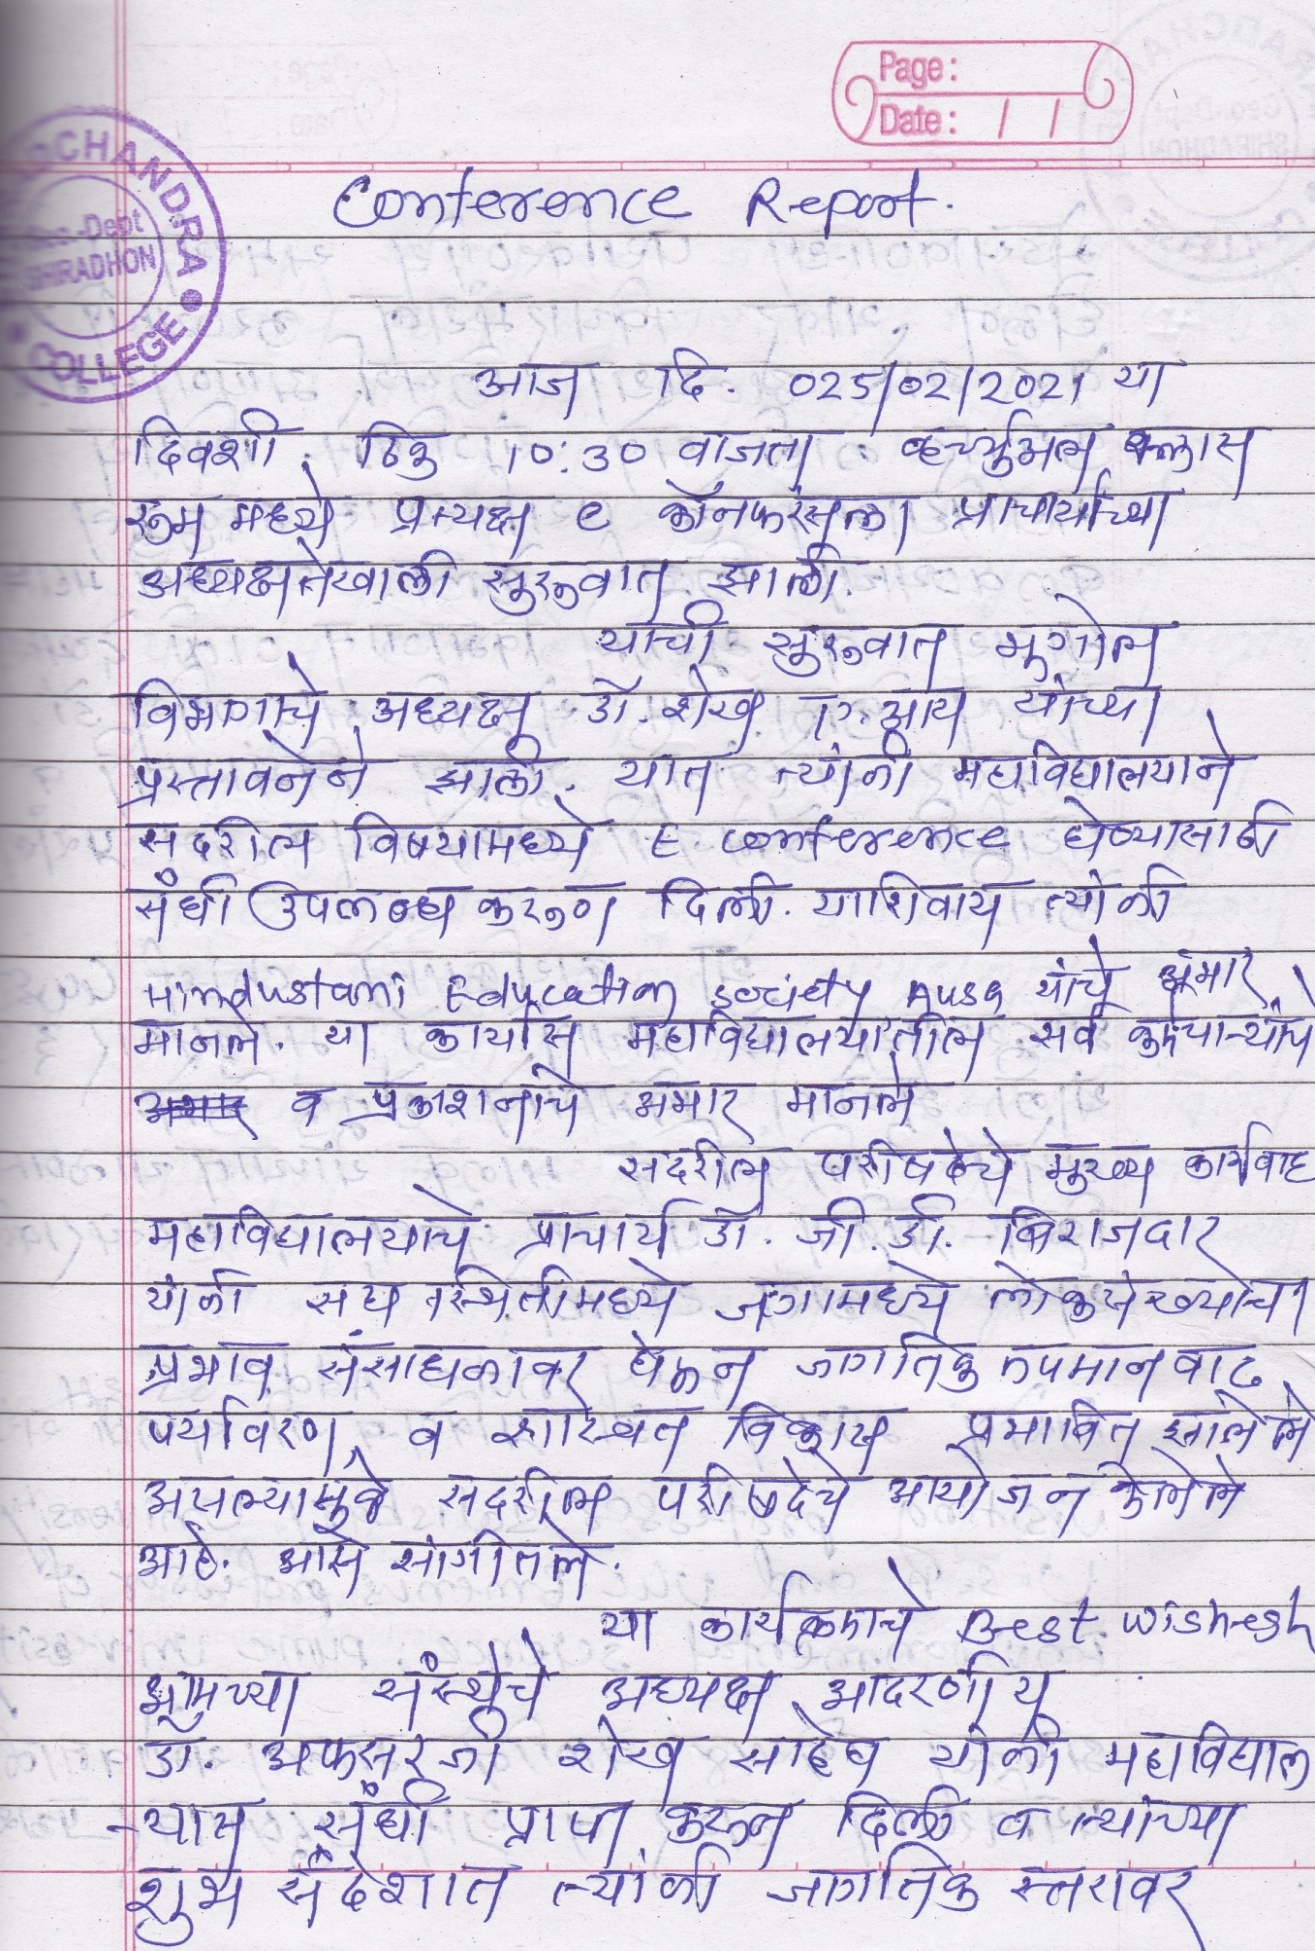 Page :
Date : / /
CHANDRA
Geo.-Dept
SHIRADHON
COLLEGE
Conference Report.
आज दि. 025/02/2021 या
दिवशी ठिक 10:30 वाजता व्हर्च्युअल क्लास
रुम मध्ये प्रत्यक्ष e कॉनफरंसला प्राचार्यांच्या
अध्यक्षतेखाली सुरुवात झाली.
यांची सुरुवात भुगोल
विभागाचे अध्यक्ष डॉ. शेख ए. आय यांच्या
प्रस्तावनेने झाली. यात त्यांनी महाविद्यालयाने
सदरील विषयामध्ये E conference घेण्यासाठी
संधी उपलब्ध करुण दिली. याशिवाय त्यांनी
Hindustani Education Society Ausa यांचे आभार
मानले. या कार्यास महाविद्यालयातील सर्व कर्मचाऱ्यांचे
व प्रकाशनाचे अभार मानले
सदरील परीषदेचे मुख्य कार्यवाह
महाविद्यालयाचे प्राचार्य डॉ. जी. डी. बिराजदार
यांनी सध्य स्थितीमध्ये जगामध्ये लोकसंख्यांचा
प्रभाव संसाधनावर घेऊन जागतिक तपमान वाढ
पर्यावरण व शास्वत विकास प्रभावित झालेले
असल्यामुळे सदरील परीषदेचे आयोजन केलेले
आहे. आसे सांगीतले.
या कार्यक्रमाचे Best wishesh
आमच्या संस्थेचे अध्यक्ष आदरणीय
डॉ. अफसरजी शेख साहेब यांनी महाविद्याल
-यास संधी प्राप्त करून दिली व त्यांच्या
शुभ संदेशात त्यांनी जागतिक स्तरावर